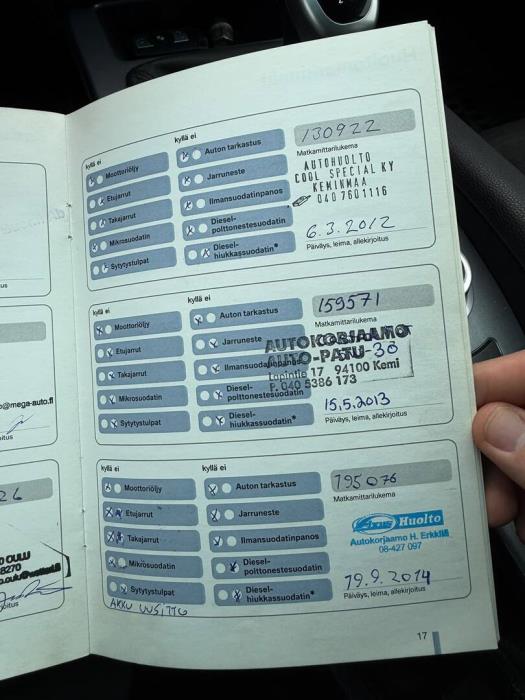 kyllä ei
kyllä ei
Moottoriöljy
Etujarrut
Takajarrut
Mikrosuodatin
Sytytystulpat
Auton tarkastus
Jarruneste
Ilmansuodatinpanos
Diesel-
polttonestesuodatin
Diesel-
hiukkassuodatin*
130922
Matkamittarilukema
AUTOHUOLTO
COOL SPECIAL KY
KEMINMAA
040 7601116
6.3.2012
Päiväys, leima, allekirjoitus
kyllä ei
kyllä ei
Moottoriöljy
Etujarrut
Takajarrut
Mikrosuodatin
Sytytystulpat
Auton tarkastus
Jarruneste
Ilmansuodatinpanos
Diesel-
polttonestesuodatin
Diesel-
hiukkassuodatin*
159571
Matkamittarilukema
AUTOKORJAAMO
AUTO-PATU
17 94100 Kemi
P. 040 5386 173
15.5.2013
Päiväys, leima, allekirjoitus
kyllä ei
kyllä ei
Moottoriöljy
Etujarrut
Takajarrut
Mikrosuodatin
Sytytystulpat
AKKU UUSITTU
Auton tarkastus
Jarruneste
Ilmansuodatinpanos
Diesel-
polttonestesuodatin
Diesel-
hiukkassuodatin*
195076
Matkamittarilukema
Huolto
Autokorjaamo H. Erkkilä
08-427 097
19.9.2014
Päiväys, leima, allekirjoitus
17
@mega-auto.fi
26
OULU
8270